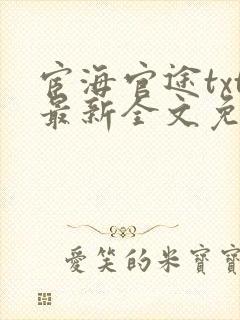 宦海官途txt
最新全文免
爱笑的米寶寶